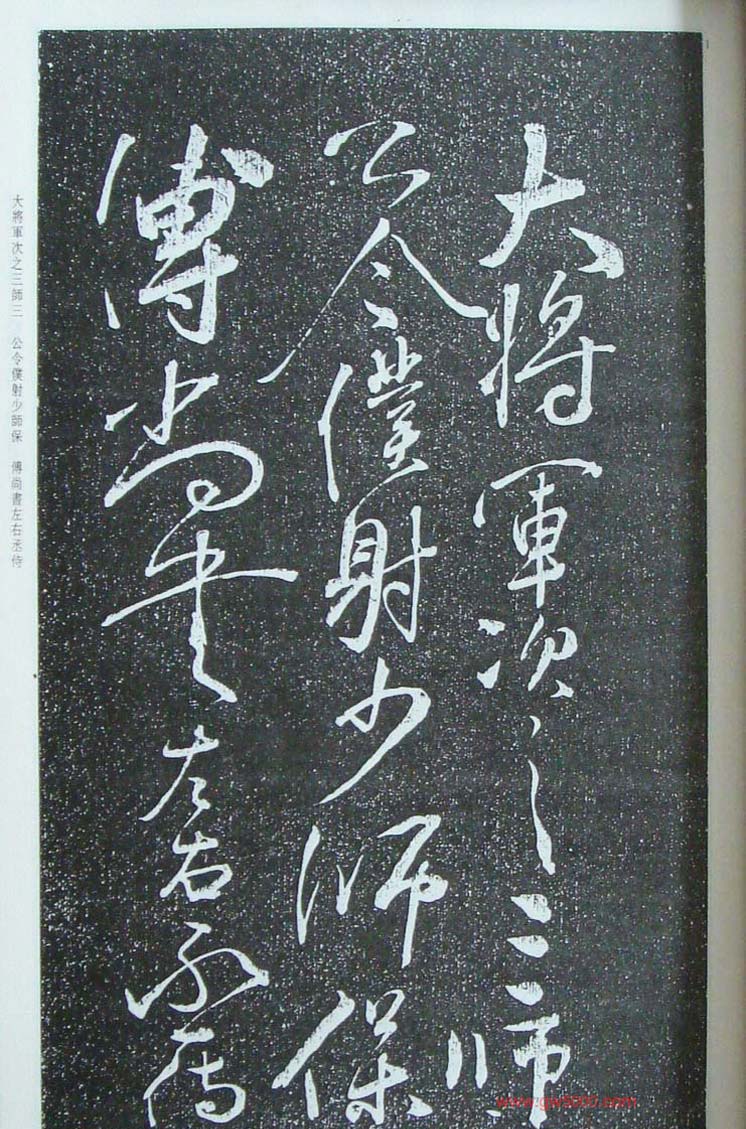 大將軍次之三師
公令僕射少師保
傅尚書左右丞侍
大將軍次之三師三　公令僕射少師保　傅尚書左右丞侍